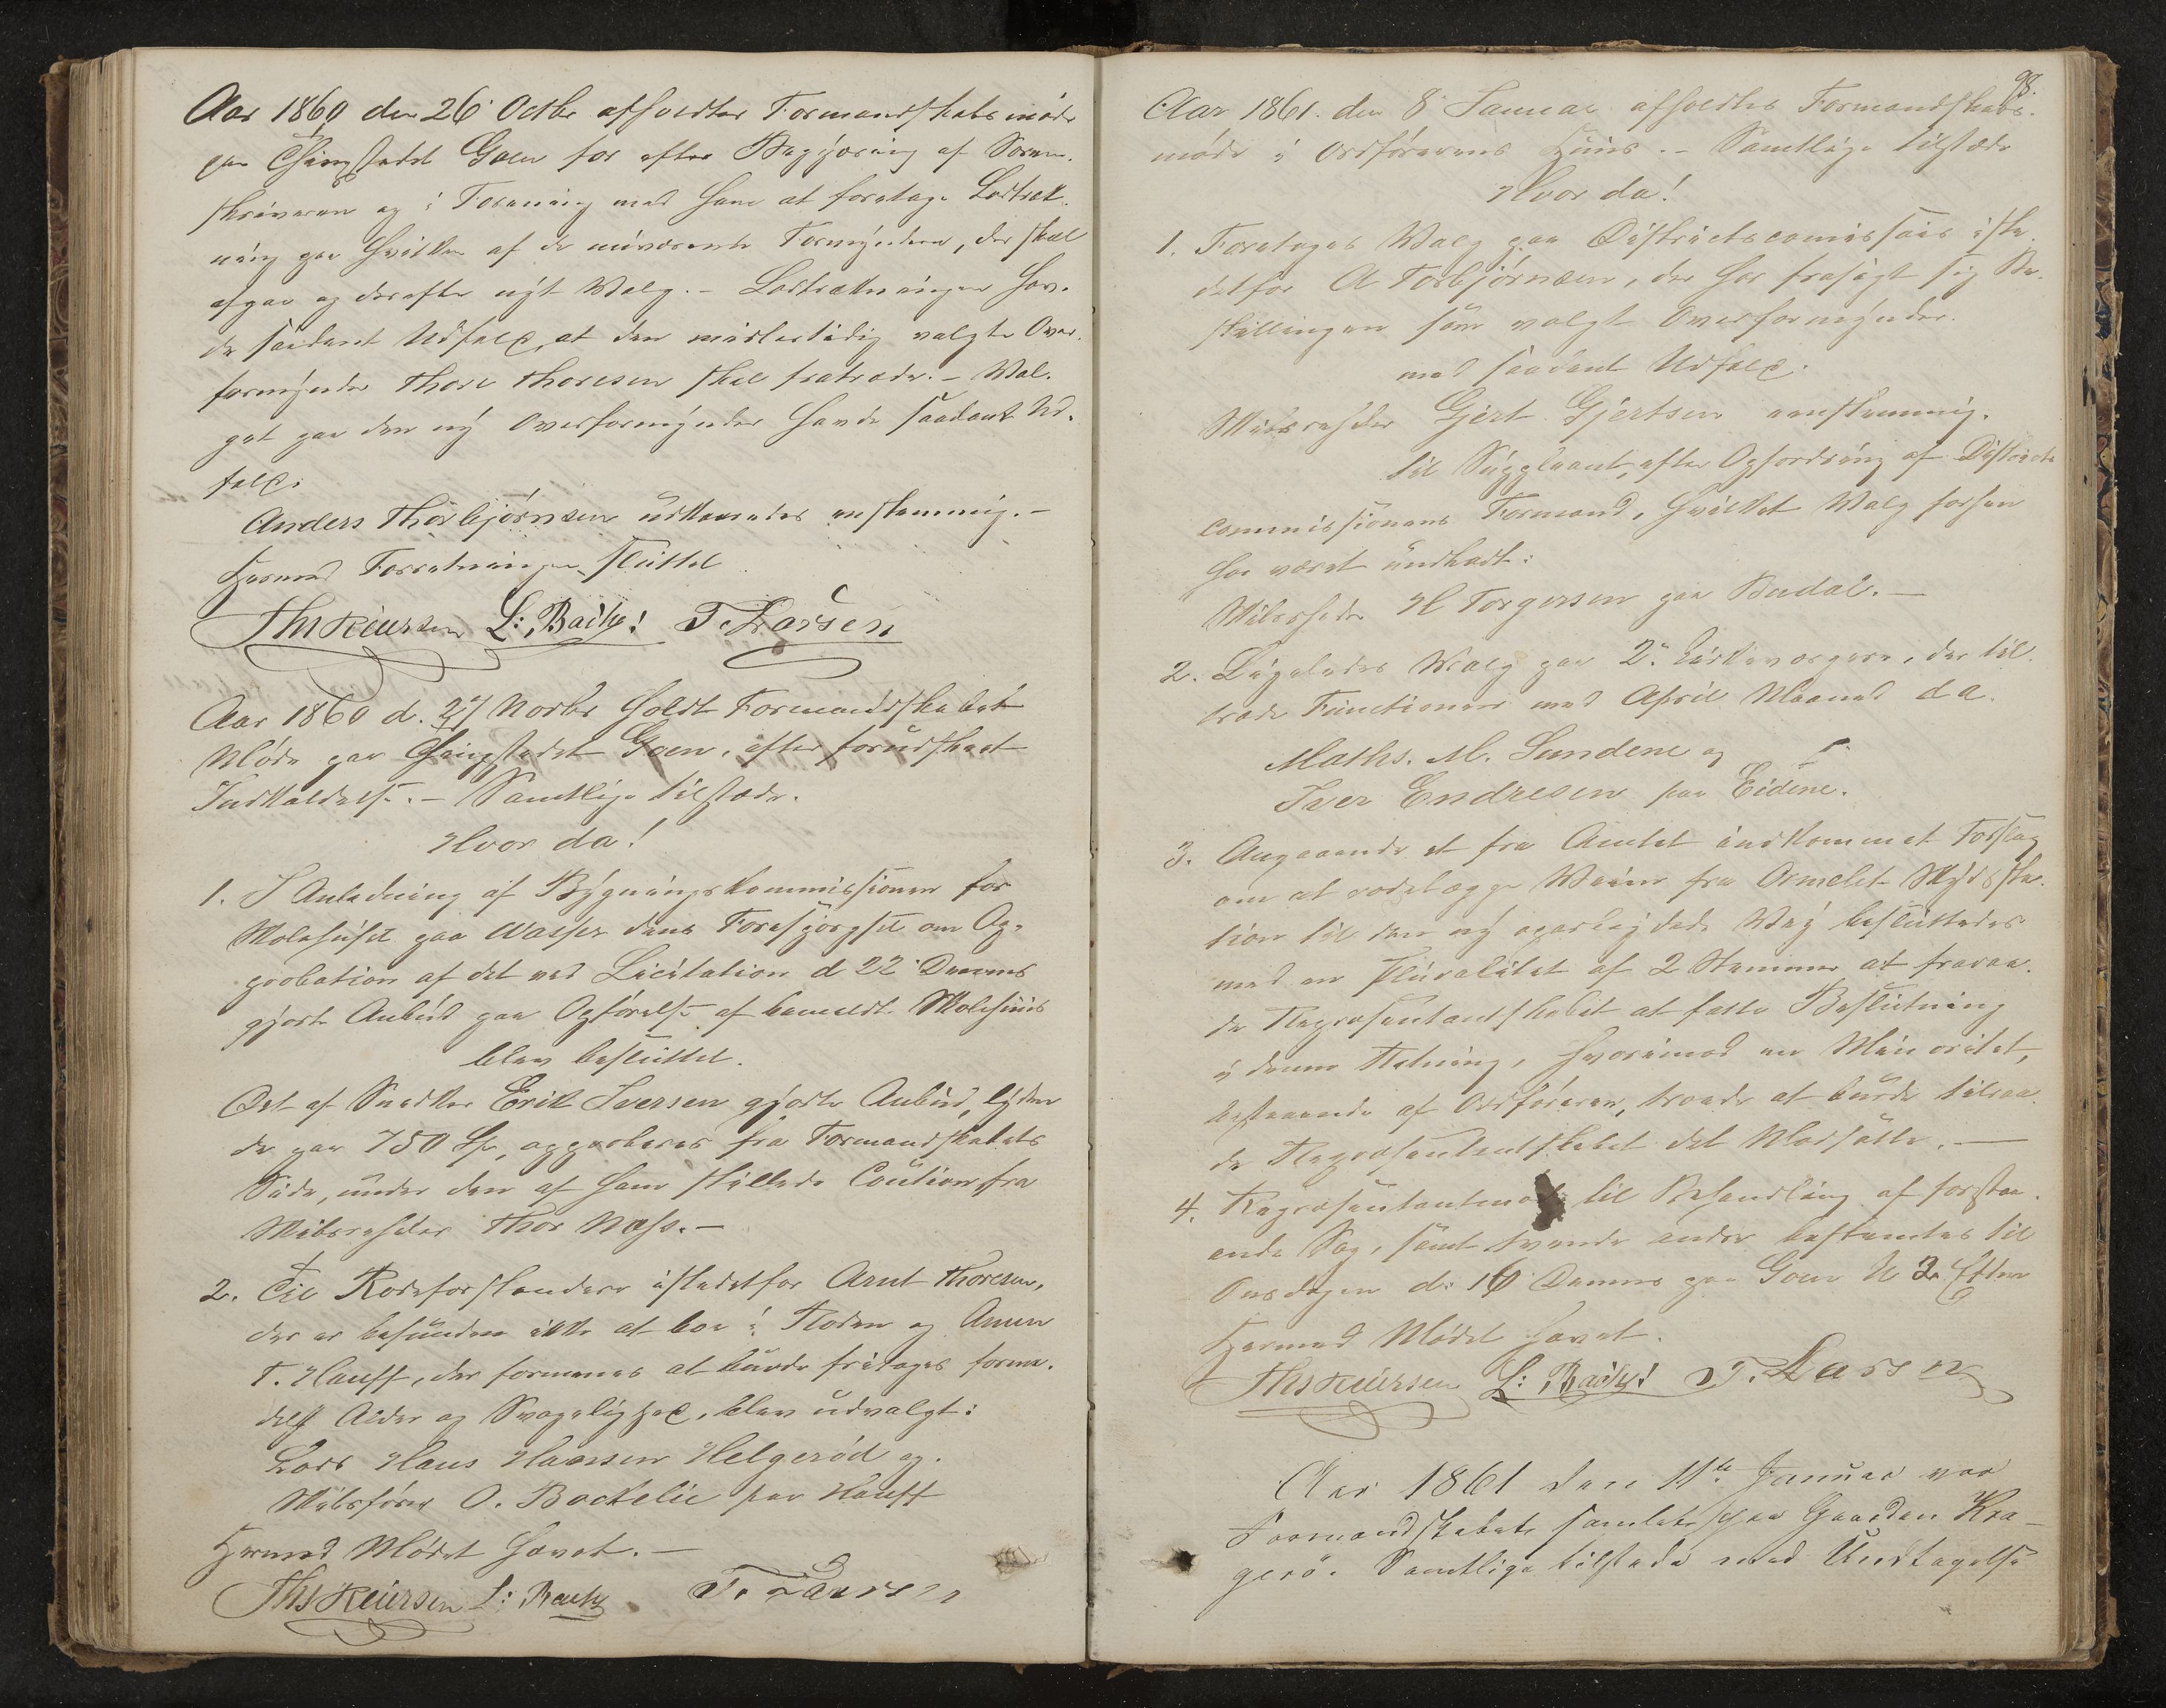 Aar 1860 den 26 Octbr afholdtes Formandskabsmøde
paa Thingstedet Goen for efter Begjæring af Soren-
skriveren og i Forening med ham at foretage Lodtræk-
ning paa hvilken af de nuværende Formyndere, der skal
afgaa og derefter nyt Valg. - Lodtrækningen hav-
de saadant Udfald, at den midlertidig valgte Over-
formynder Thore Thoresen skal fratræde. - Val-
get paa den ny Overformynder havde saadant Ud-
fald:
Anders Thorbjørnsen udkaaredes enstemmig. -
Hermed Forretningen sluttet
Ths Reiersen L: Bache! T. Larsen
Aar 1860 d. 27 Novbr holdt Formandskabet
Møde paa Thingstedet Goen, efter forudskeet
Indkaldelse. - Samtlige tilstæde.
Hvor da!
1. I Anledning af Bygningskommissionen for
Skolehuset paa Vasser dens Forespørgsel om Ap-
probation af det ved Licitation d 22 Dennes
gjorte Anbud paa Opførelse af bemeldte Skolehuus
blev besluttet.
Det af Snedker Erik Iversen gjorte Anbud, lyden-
de paa 750 Spd, approberes fra Formandskabets
Side, under den af ham stillede Caution fra
Skibsrheder Thor Næss. -
2. Til Rodeforstandere istedetfor Arnt Thoresen,
der er befunden ikke at boe i Roden og Anun
T. Hauff, der formenes at burde fritages forme-
delst Alder og Svagelighed, blev udvalgt:
Lods Hans Hansen Helgerød og
Skibsfører O. Backelie paa Hauff
Hermed Mødet hævet. -
Ths Reiersen L: Bache T. Larsen
98.
Aar 1861. den 8 Januar afholdtes Formandskabs-
møde i Ordførerens Huus. - Samtlige tilstæde
Hvor da!
1. Foretoges Valg paa Districtscomissair iste-
detfor A Torbjørnsen, der har frasagt sig Be-
stillingen som valgt Overformynder.
med saadant Udfald:
Skibsrheder Gjert Gjertsen eenstemmig.
til Suppleant, efter Opfordring af Districts
commissionens Formand, hvilket Valg forhen
har været undladt:
Skibsrheder H Torgersen paa Budal. -
2. Ligeledes Valg paa 2de Kirkeværgere, der til-
træde Functionen med April Maaned d A.
Maths. M. Sundene og
Iver Endresen paa Eidene.
3. Angaaende et fra Amtet indkommet Forslag
om at rodelægge Veien fra Ormelet Skydssta-
tion til den ny oparbejdede Vej besluttedes
med en Pluralitet af 2 Stemmer at fraraa-
de Repræsentantskabet at fatte Beslutning
i denne Retning, hvorimod en Minoritet,
bestaaende af Ordføreren, troede at burde tilraa-
de Repræsentantskabet det Modsatte. -
4. Repræsentantmøde til Behandling af forstaa-
ende Sag, samt tvende andre bestemtes til
Onsdagen d: 16 Dennes paa Goen Kl 3 Efterm
Hermed Mødet hævet.
Ths Reiersen L: Bache! T. Larsen
Aar 1861 den 11te Januar var
Formandskabet samlet paa Gaarden Kra-
gerø. Samtlige tilstede med Undtagelse